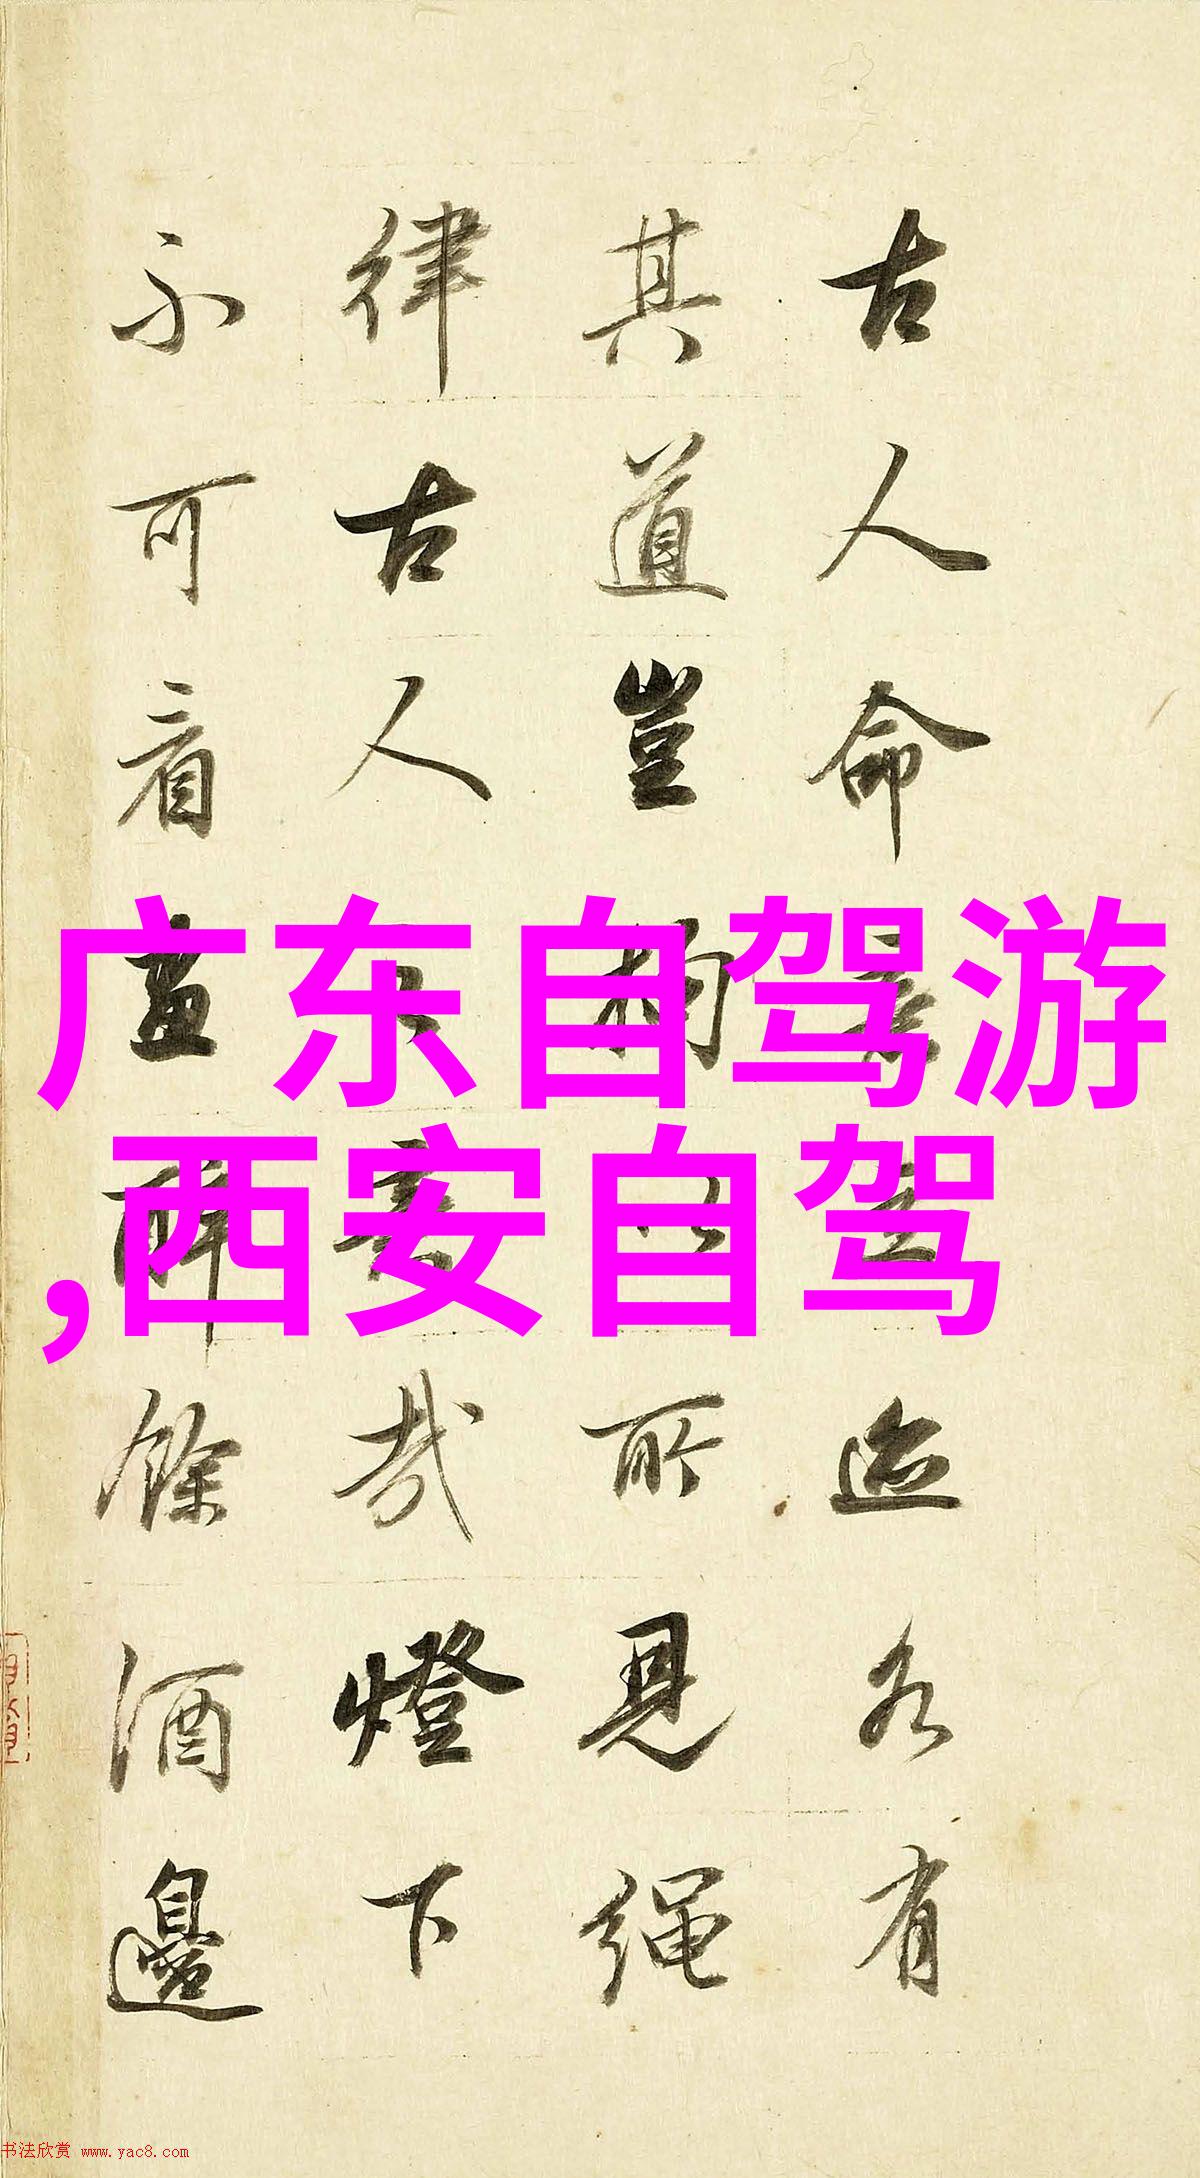 古人命迹各有
其道豈相以所見繩
律古人哉燈下
不可看畫醉餘酒邊
广东自驾游
,西安自驾
书法欣赏 www.yac8.com